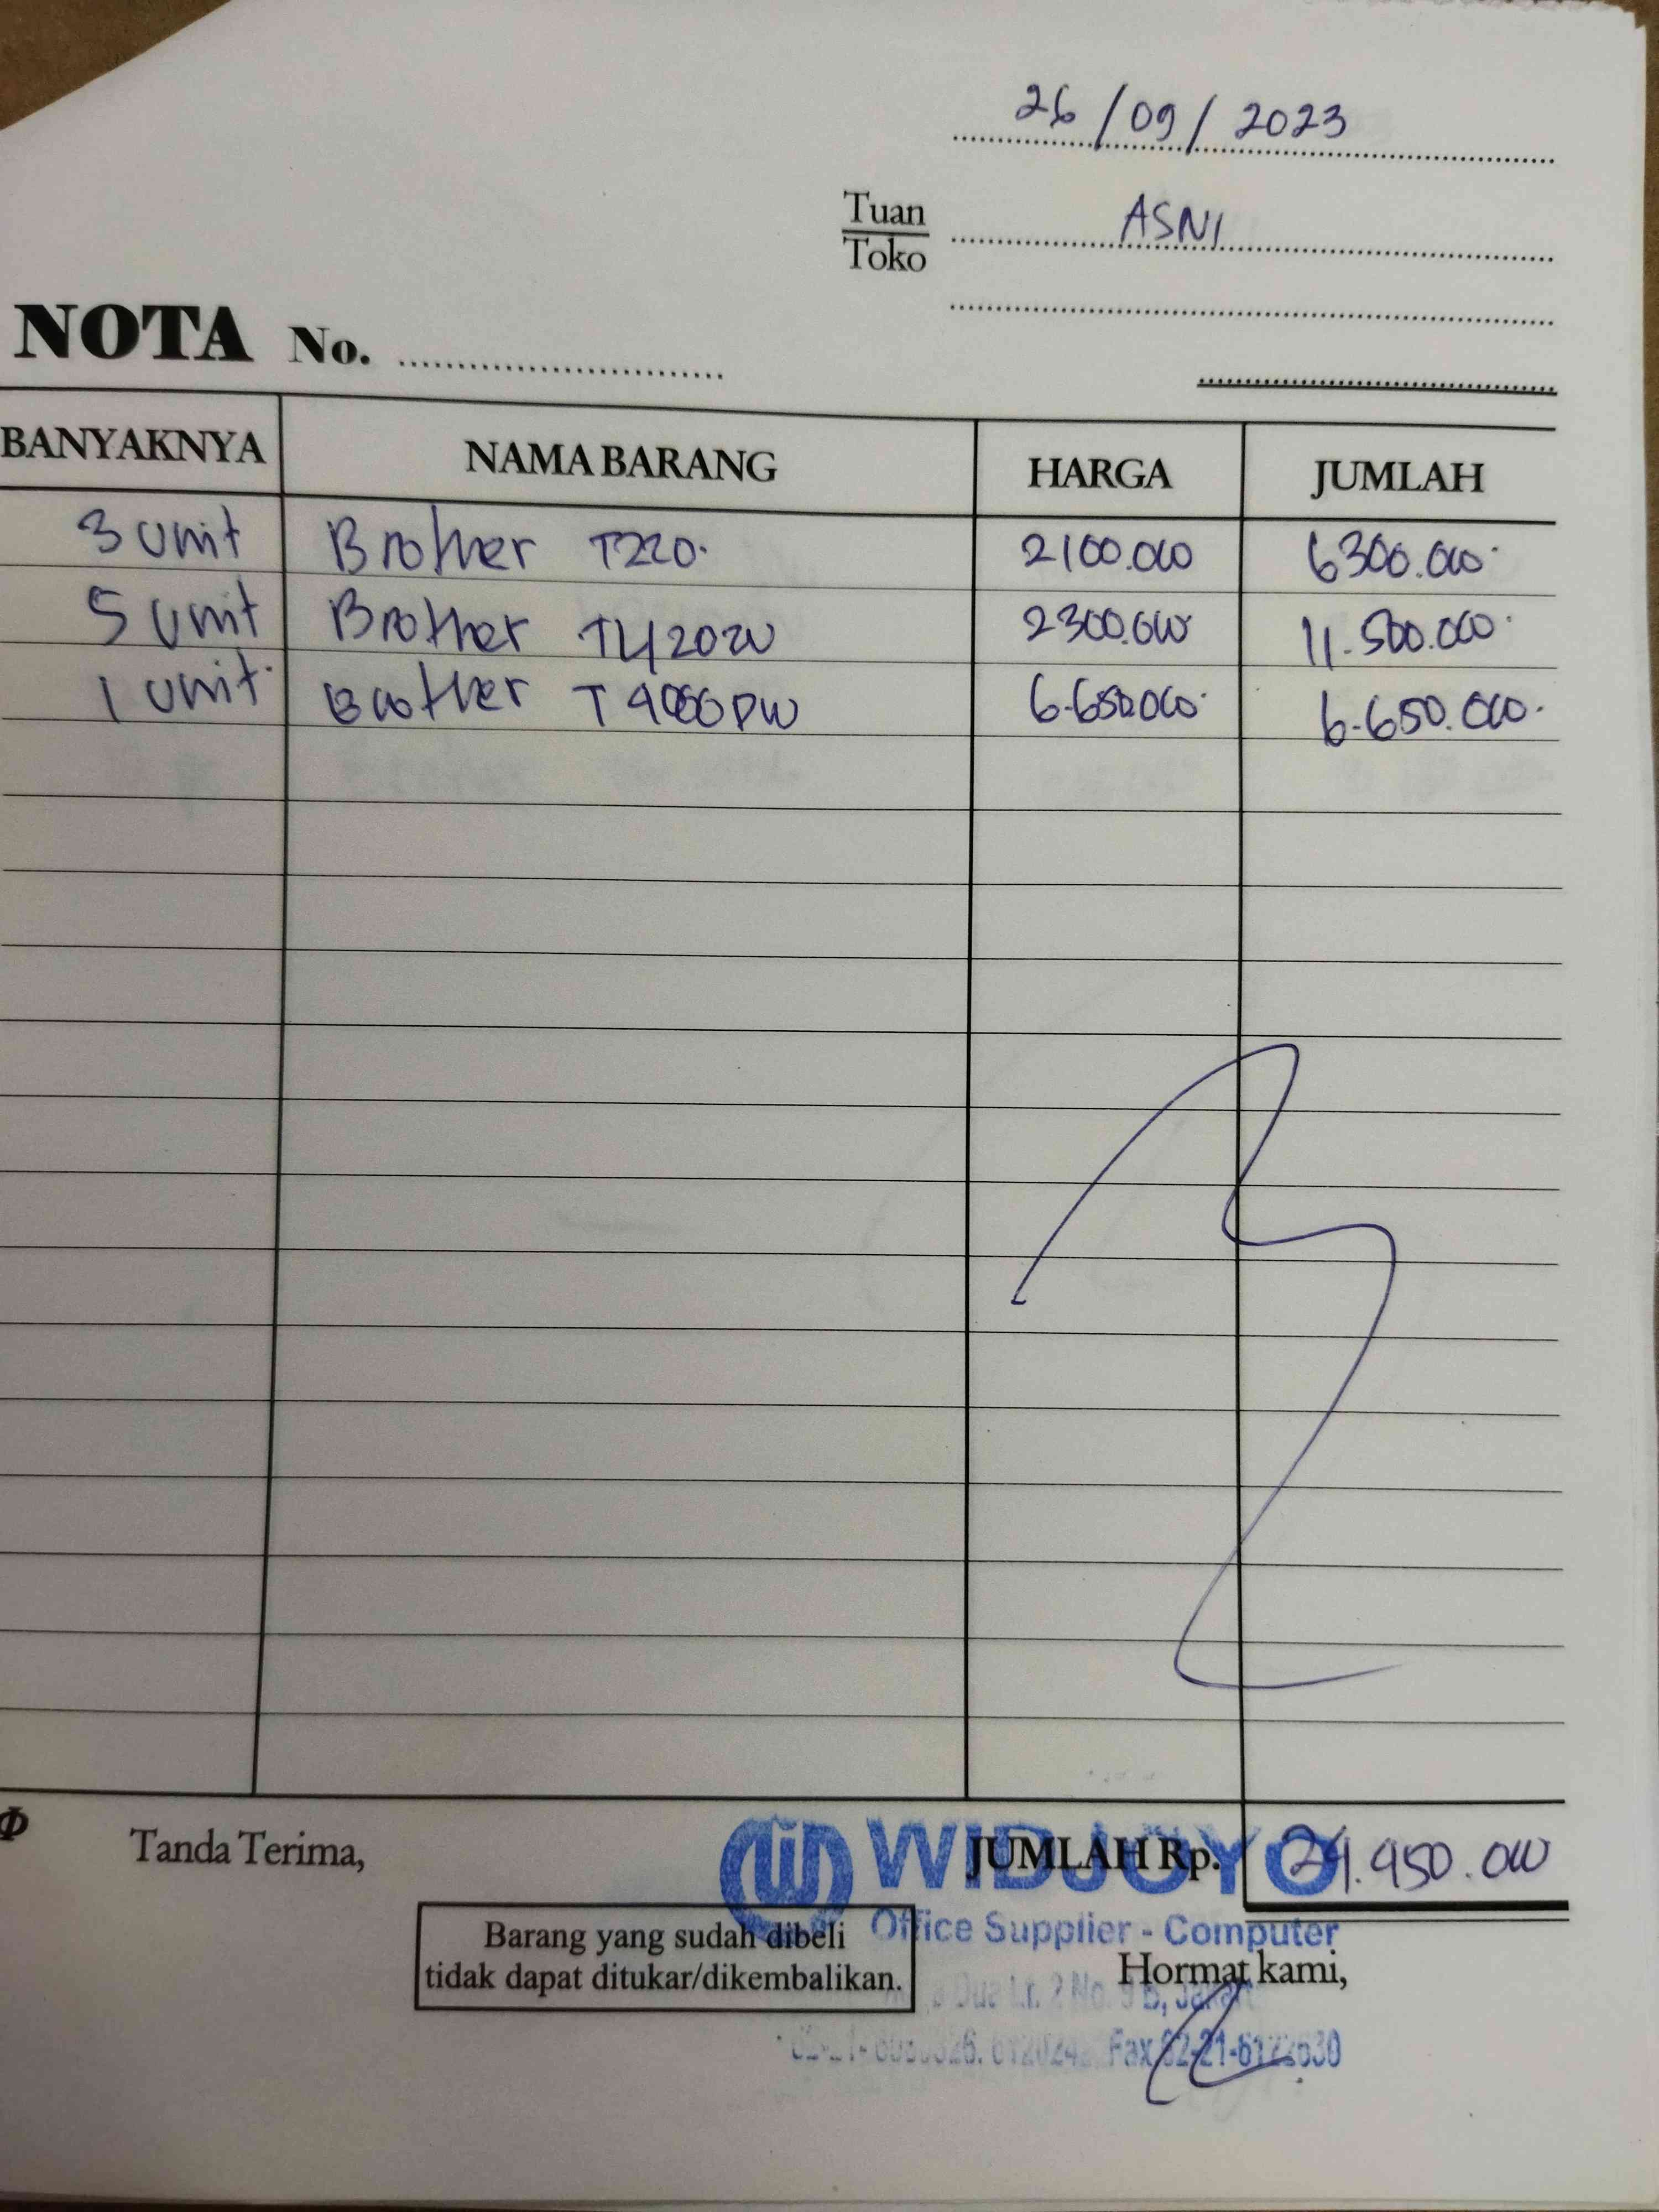 26/09/2023
Tuan ASNI
Toko
NOTA No.
BANYAKNYA NAMA BARANG HARGA JUMLAH
3 unit Brother T220. 2100.000 6300.000
5 unit Brother T420W 2300.000 11.500.000
1 unit Brother T4000DW 6.650.000 6.650.000
Tanda Terima, JUMLAH Rp. 24.450.000
WIDJOYO
Office Supplier - Computer
Barang yang sudah dibeli
tidak dapat ditukar/dikembalikan.
Hormat kami,
Dua Lr. 2 No. 9 B,
Fax